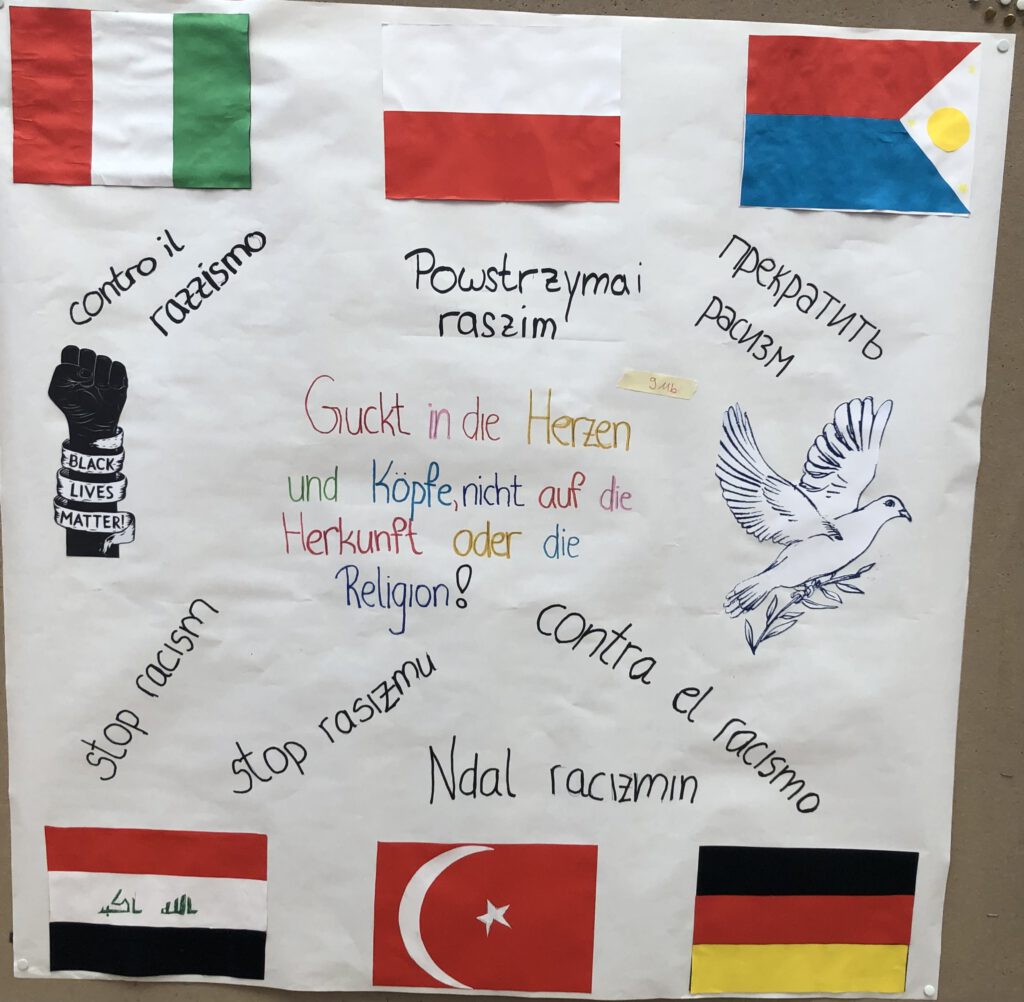 contro il
razzismo
Powstrzymai
raszim
прекратить
расизм
9Mb
BLACK
LIVES
MATTER!
Guckt in die Herzen
und Köpfe, nicht auf die
Herkunft oder die
Religion!
stop racism
stop rasizmu
contra el racismo
Ndal racizmin
الله اكبر